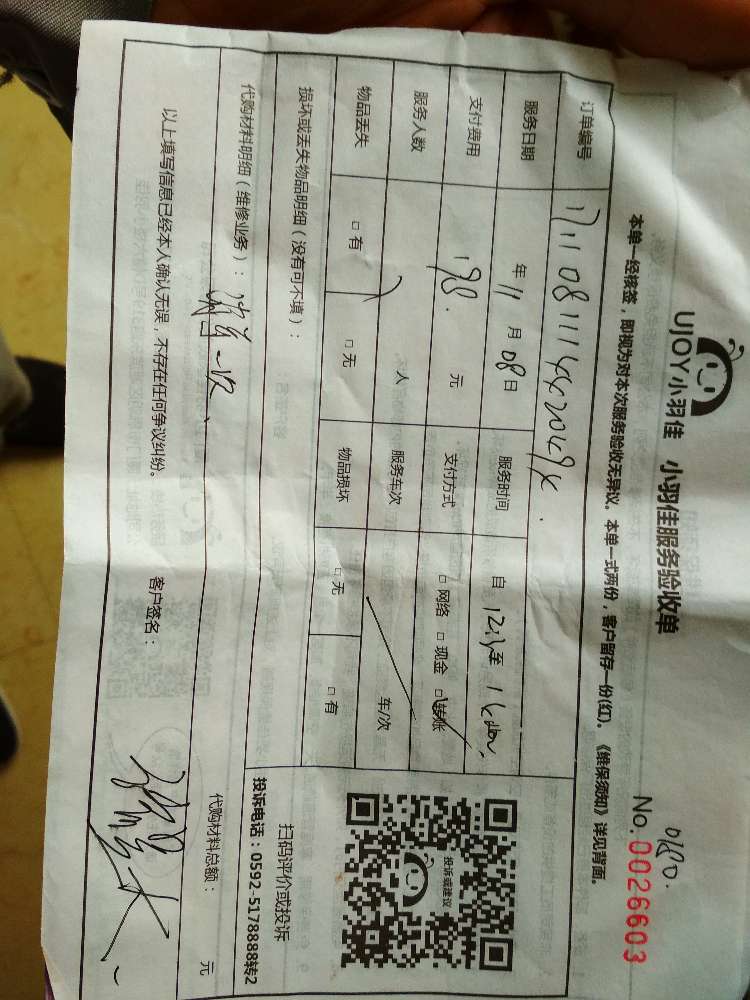 UJOY小羽佳 小羽佳服务验收单
0180.
No. 0026603
本单一经核签，即视为对本次服务验收无异议。本单一式两份，客户留存一份(红)。《维保须知》详见背面。
订单编号
服务日期 年 11 月 08 日 服务时间 自 至
支付费用 198. 元 支付方式 □ 网络 □ 现金 □ 转账
服务人数 人 服务车次 车/次
物品丢失 □ 有 □ 无 物品损坏 □ 无 □ 有
损坏或丢失物品明细（没有可不填）：
投诉或建议
扫码评价或投诉
投诉电话：0592-5178888转2
代购材料明细（维修业务）： 一次 代购材料总额： 元
以上填写信息已经本人确认无误，不存在任何争议纠纷。 客户签名：